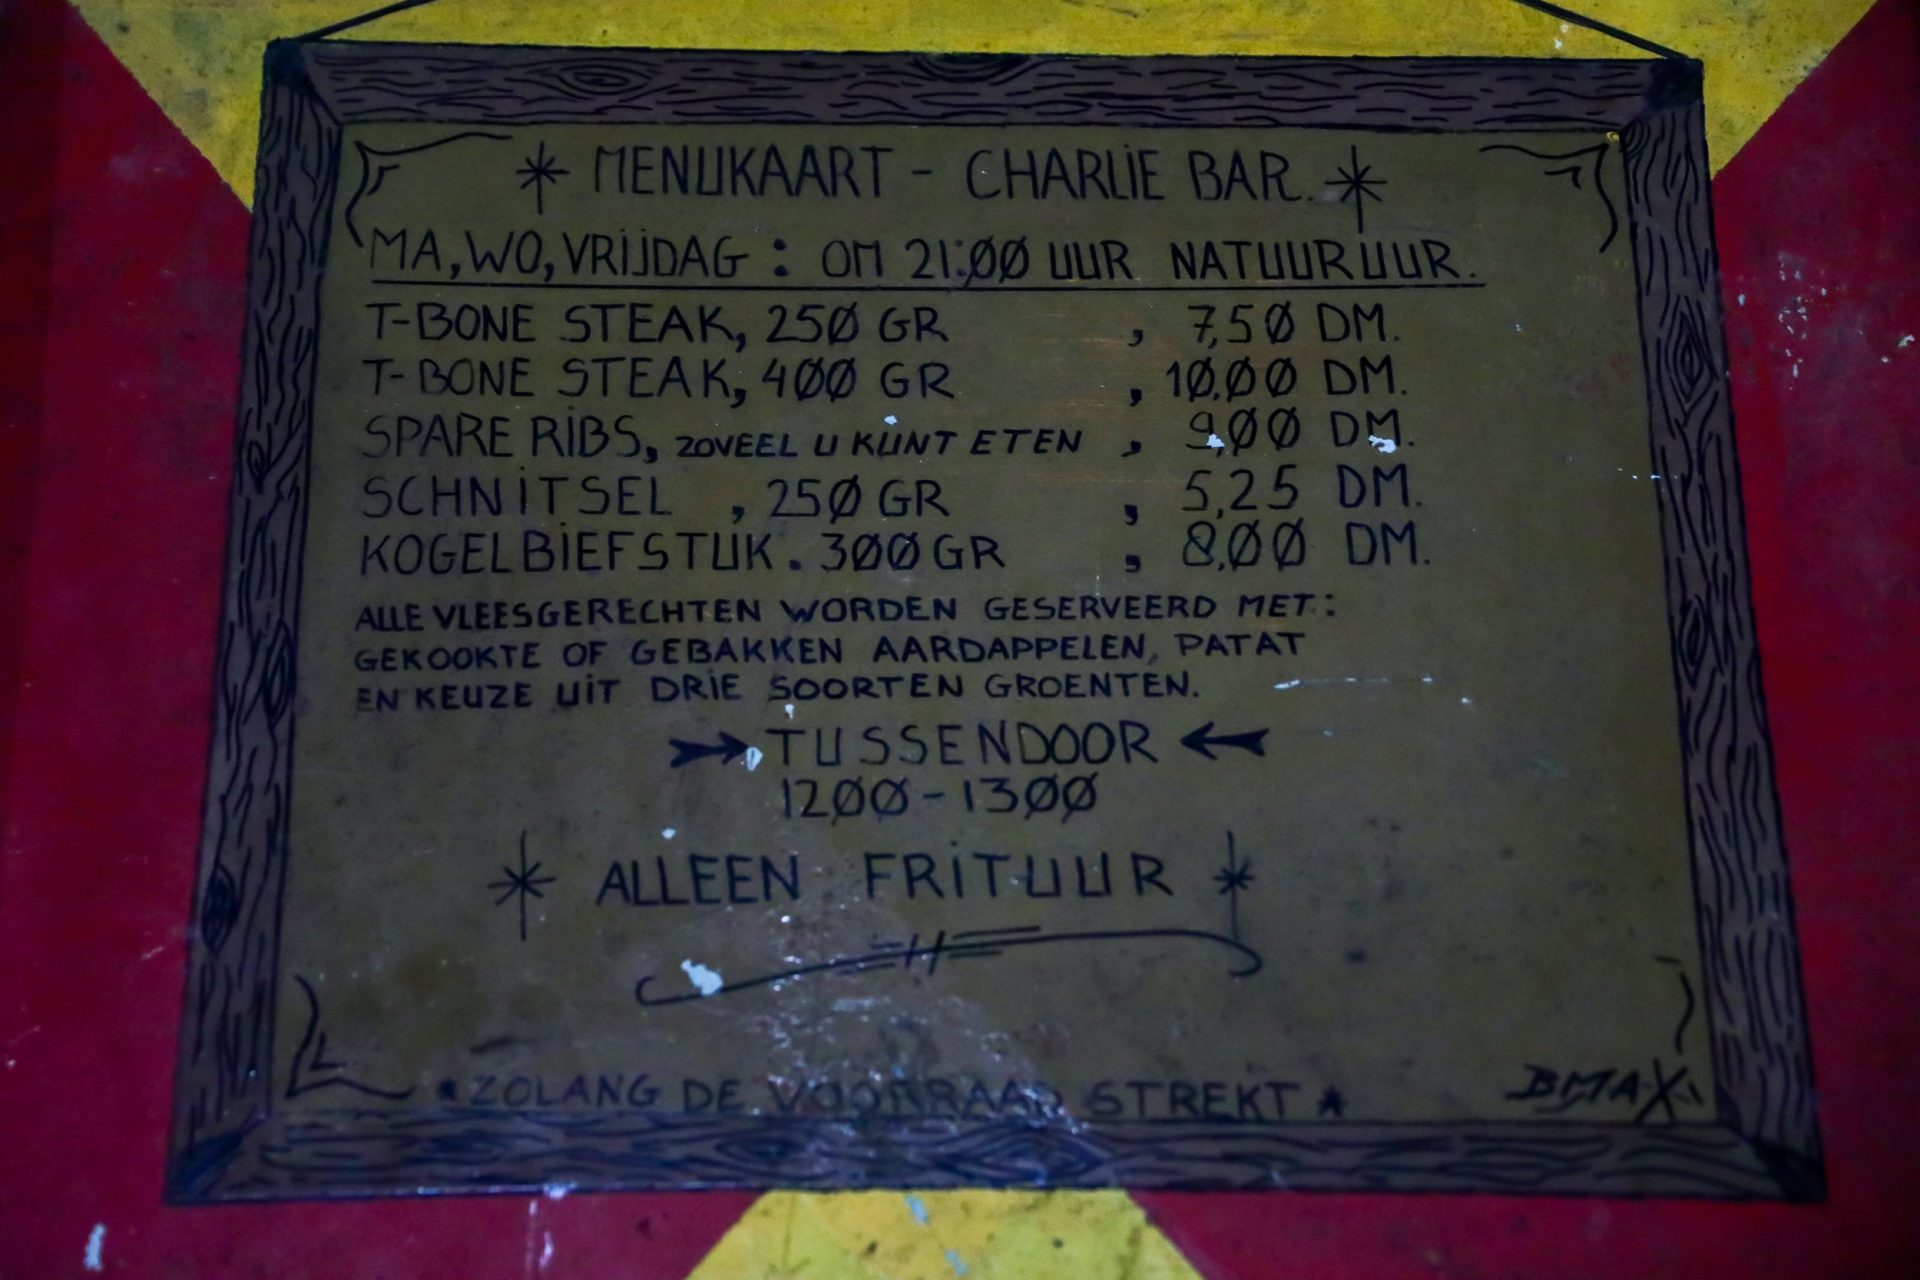 * MENUKAART - CHARLIE BAR. *
MA, WO, VRIJDAG : OM 21:00 UUR NATUURUUR.
T-BONE STEAK, 250 GR , 7,50 DM.
T-BONE STEAK, 400 GR , 10,00 DM.
SPARE RIBS, ZOVEEL U KUNT ETEN , 9,00 DM.
SCHNITSEL , 250 GR , 5,25 DM.
KOGELBIEFSTUK. 300 GR , 8,00 DM.
ALLE VLEESGERECHTEN WORDEN GESERVEERD MET:
GEKOOKTE OF GEBAKKEN AARDAPPELEN, PATAT
EN KEUZE UIT DRIE SOORTEN GROENTEN.
TUSSENDOOR
1200-1300
* ALLEEN FRITUUR *
* ZOLANG DE VOORRAAD STREKT *
BMAX